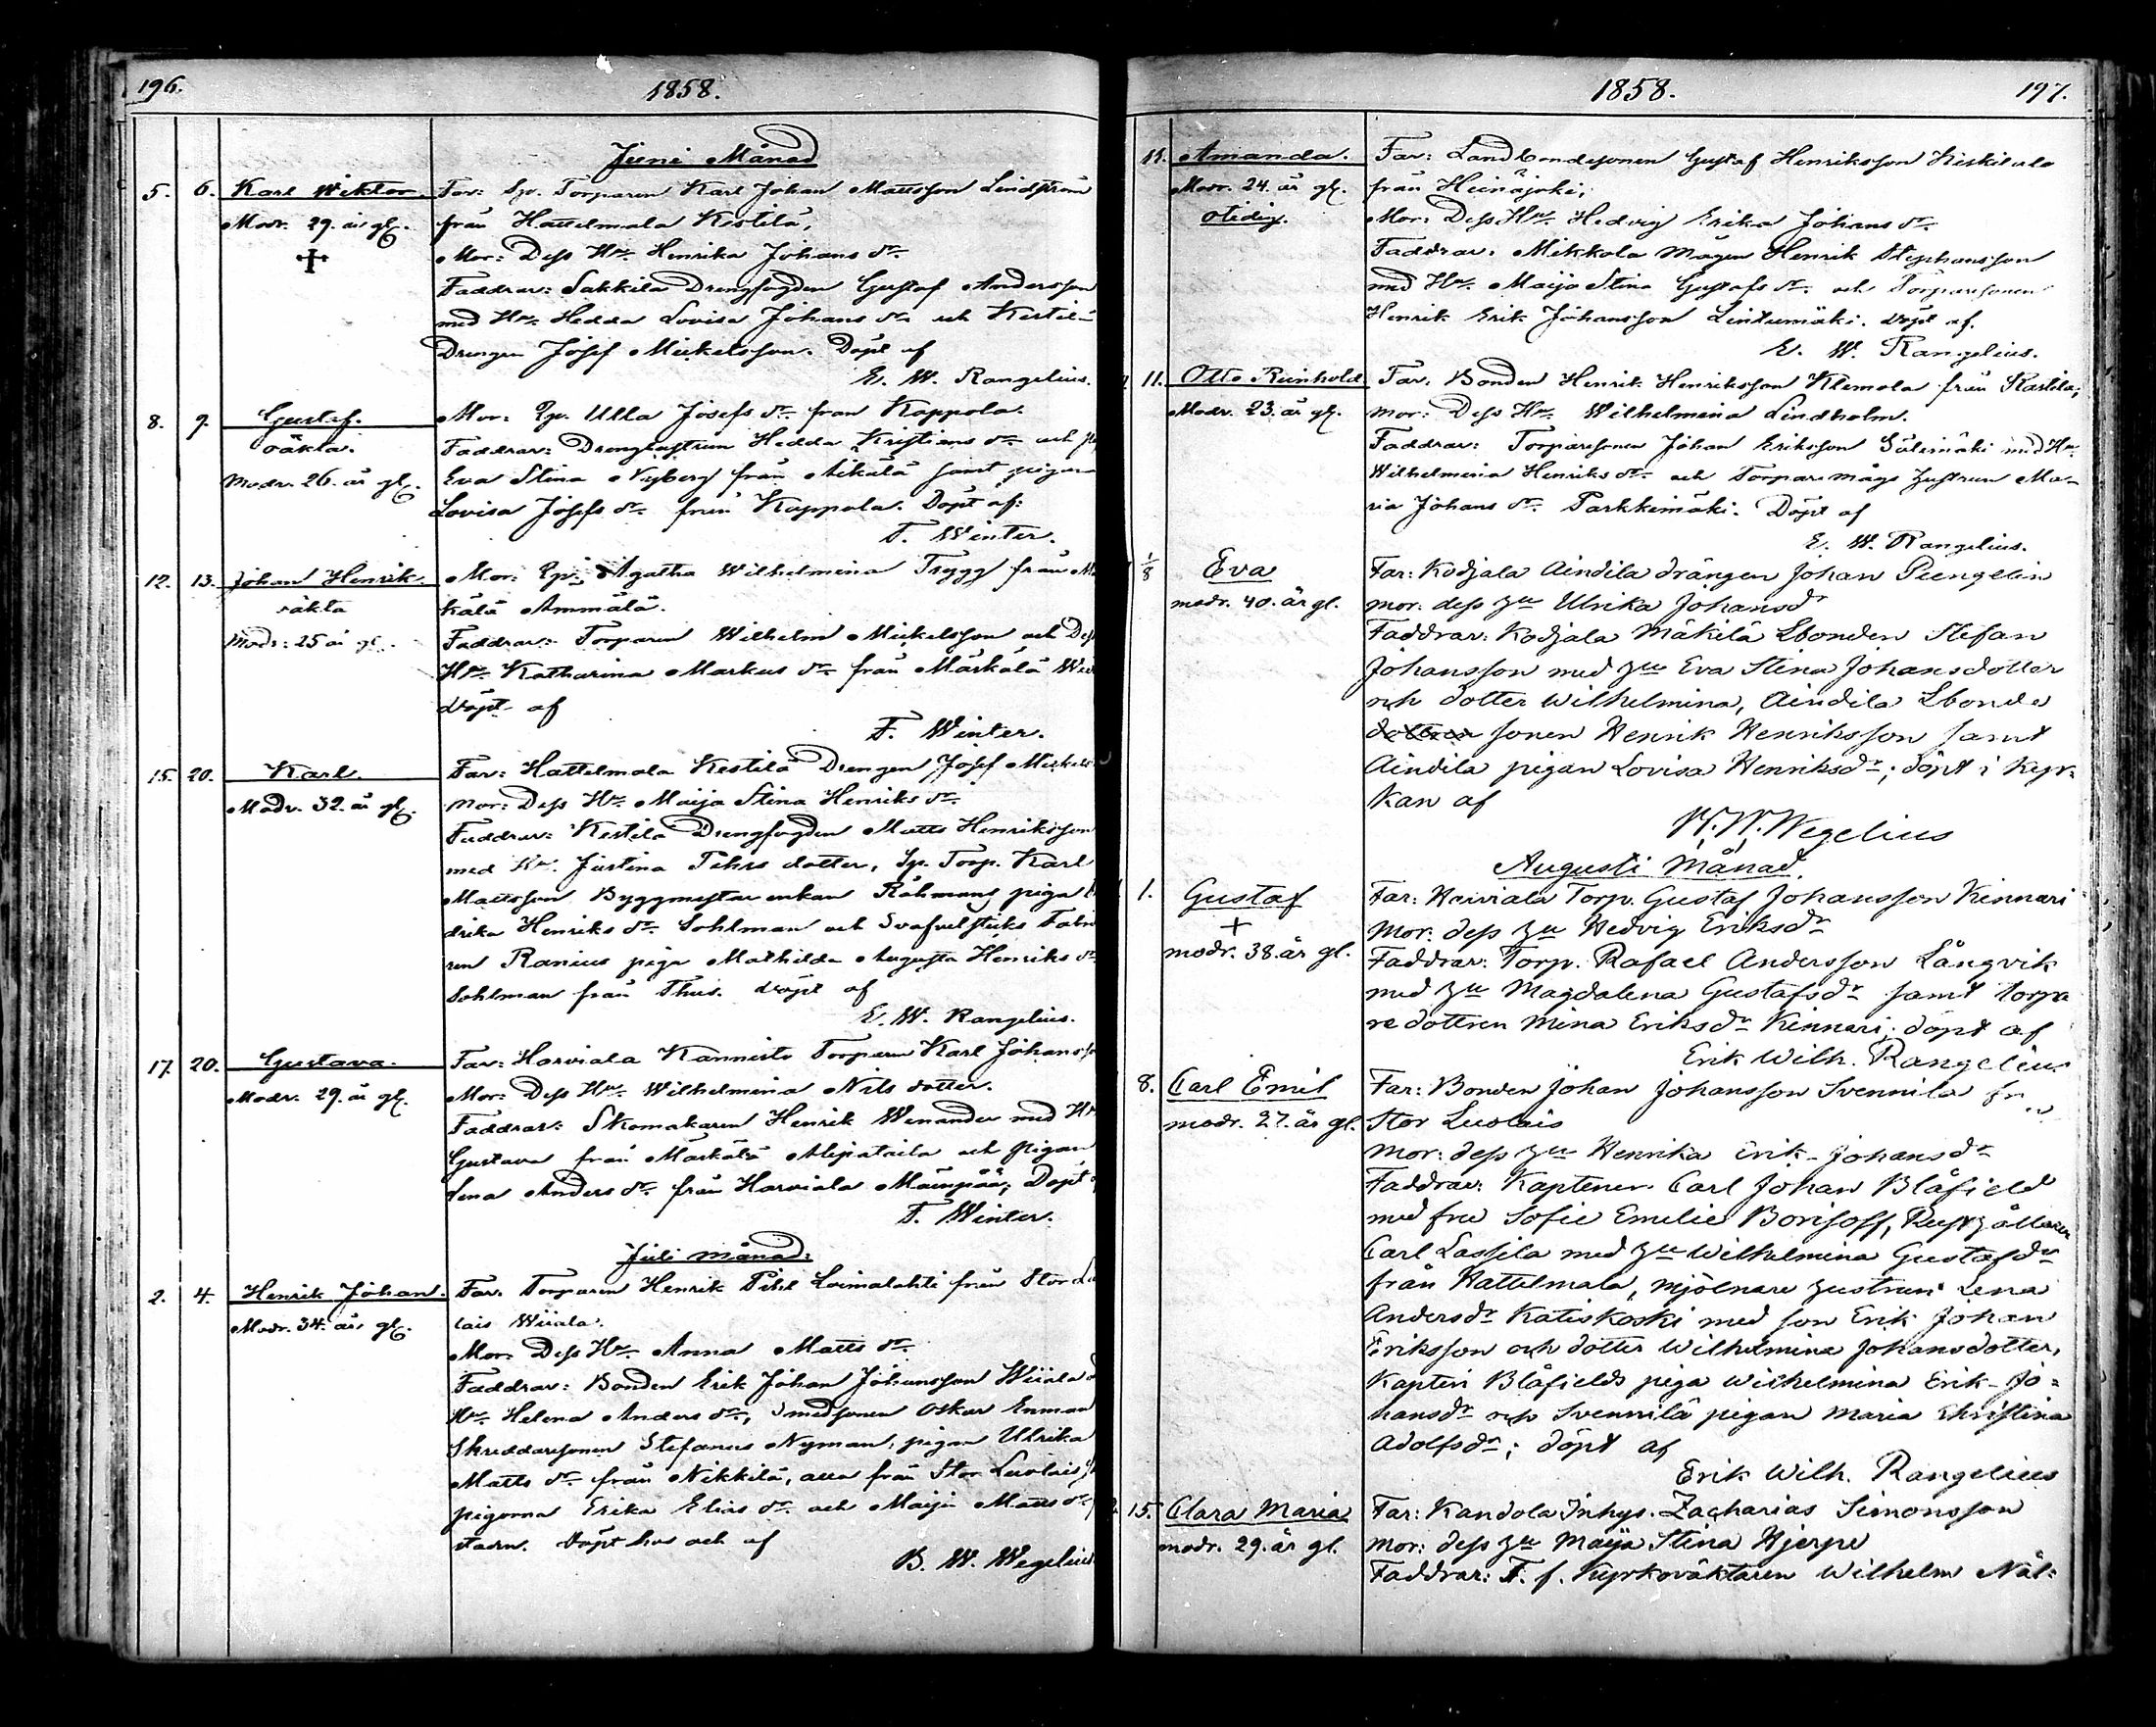 196.
1858.
Juni Månad
5. 6. Karl Wiktor. Far: Sp. Torparen Karl Johan Mattsson Lindström
Modr. 29. år gl. från Hattelmala Kestilä,
Mor: Dess Hu. Henrika Johans dr.
Faddrar: Sakkila Drengfogden Gustaf Andersson
med Hu. Hedda Lovisa Johans dr. och Kestilä
Drengen Josef Mickelsson. Döpt af
E. W. Rangelius.
8. 9. Gustaf. Mor: Pp. Ulla Josefs dr. från Kappola.
oäkta. Faddrar: Drenghustrun Hedda Kristians dr. och
Modr. 26. år gl. Eva Stina Nyberg från Aikälä samt pigan
Lovisa Josefs dr. från Kappola. Döpt af:
F. Winter.
12. 13. Johan Henrik. Mor: Pp. Agatha Wilhelmina Trygg från
oäkta kälä Ammälä.
Modr: 25 år gl. Faddrar: Torparen Wilhelm Mickelsson och Dess
Hu. Katharina Markus dr. från Märkälä
döpt af
F. Winter.
15. 20. Karl. Far: Hattelmala Kestilä Drengen Josef
Modr. 32. år gl. Mor: Dess Hu. Maija Stina Henriks dr.
Faddrar: Kestilä Drengfogden Matts Henriksson
med Hu. Justina Pehrs dotter, Sp. Torp. Karl
Mattsson Byggmästar enkan Råhmans piga
drika Henriks dr. Sohlman och Svafvelsticks
ren Ranius piga Mathilda Augusta Henriks dr.
Sohlman från Thus. döpt af
E. W. Rangelius.
17. 20. Gustava. Far: Harviala Kannisto Torparen Karl
Modr. 29. år gl. Mor: Dess Hu. Wilhelmina Nils dotter.
Faddrar: Skomakaren Henrik Wenander med Hu
Gustava från Märkälä Alipataila och pigan
Lena Anders dr. från Harviala Mäenpää; Döpt
F. Winter.
Juli månad:
2. 4. Henrik Johan. Far: Torparen Henrik Pihl Loimalahti från Stor
Modr. 34. år gl. lais Wiiala.
Mor: Dess Hu. Anna Matts dr.
Faddrar: Bonden Erik Johan Johansson Wiiala
Hu. Helena Anders dr., Smedsonen Oskar Enman
Skreddaresonen Stefanus Nyman, pigan Ulrika
Matts dr. från Nikkilä, alla från Stor Luolais
pigorna Erika Elias dr. och Maija Matts dr.
staden. Döpt hos och af
B. W. Wegelius
1858.
197.
11. Amanda. Far: Landbondesonen Gustaf Henriksson
Modr. 24. år gl. från Heinäjoki;
otidig. Mor: Dess Hu. Hedvig Erika Johans dr.
Faddrar: Mikkola mågen Henrik Stephansson
med Hu. Maija Stina Gustafs dr. och Torparesonen
Henrik Erik Johansson Lintumäki. döpt af.
E. W. Rangelius.
11. Otto Reinhold Far: Bonden Henrik Henriksson Klemola från Rastila;
Modr. 23. år gl. Mor: Dess Hu. Wilhelmina Lindholm.
Faddrar: Torparesonen Johan Eriksson Sälimäki med Hu.
Wilhelmina Henriks dr. och Torpare mågs hustrun Ma-
ria Johans dr. Parkkimäki. Döpt af
E. W. Rangelius.
1/8 Eva Far: Kodjala Aindila drängen Johan Peengelin
modr. 40. år gl. mor: dess hu Ulrika Johansdr
Faddrar: Kodjala Mäkilä Lbonden Stefan
Johansson med hu Eva Stina Johansdotter
och dotter Wilhelmina, Aindila Lbonde
dottren sonen Henrik Henriksson samt
Aindila pigan Lovisa Henriksdr; döpt i Kyr-
kan af
B. W. Wegelius
Augusti Månad.
1. Gustaf Far: Harviala Torp. Gustaf Johansson Kinnari
Mor: dess hu Hedvig Eriksdr
modr. 38. år gl. Faddrar: Torp. Rafael Andersson Långvik
med hu Magdalena Gustafsdr samt torpa
re dottren Mina Eriksdr Kinnari; döpt af
Erik Wilh. Rangelius
8. Carl Emil Far: Bonden Johan Johansson Svennilä fr
modr. 27. år gl. Stor Luolais
Mor: dess hu Henrika Erik-Johansdr
Faddrar: Kaptenen Carl Johan Blåfield
med fru Sofie Emilie Borisoff, Rusthållaren
Carl Lassila med hu Wilhelmina Gustafsdr
från Kattelmala, Mjölnare hustrun Lena
Andersdr Katiskoski med son Erik Johan
Eriksson och dotter Wilhelmina Johansdotter,
Kapten Blåfields piga Wilhelmina Erik-Jo-
hansdr och Svennilä pigan Maria Christina
Adolfsdr; döpt af
Erik Wilh. Rangelius
15. Clara Maria Far: Kandola Inhys. Zacharias Simonsson
modr. 29. år gl. Mor: dess hu Maija Stina Hjerpe
Faddrar: F. f. Kyrkoväktaren Wilhelm Näl-